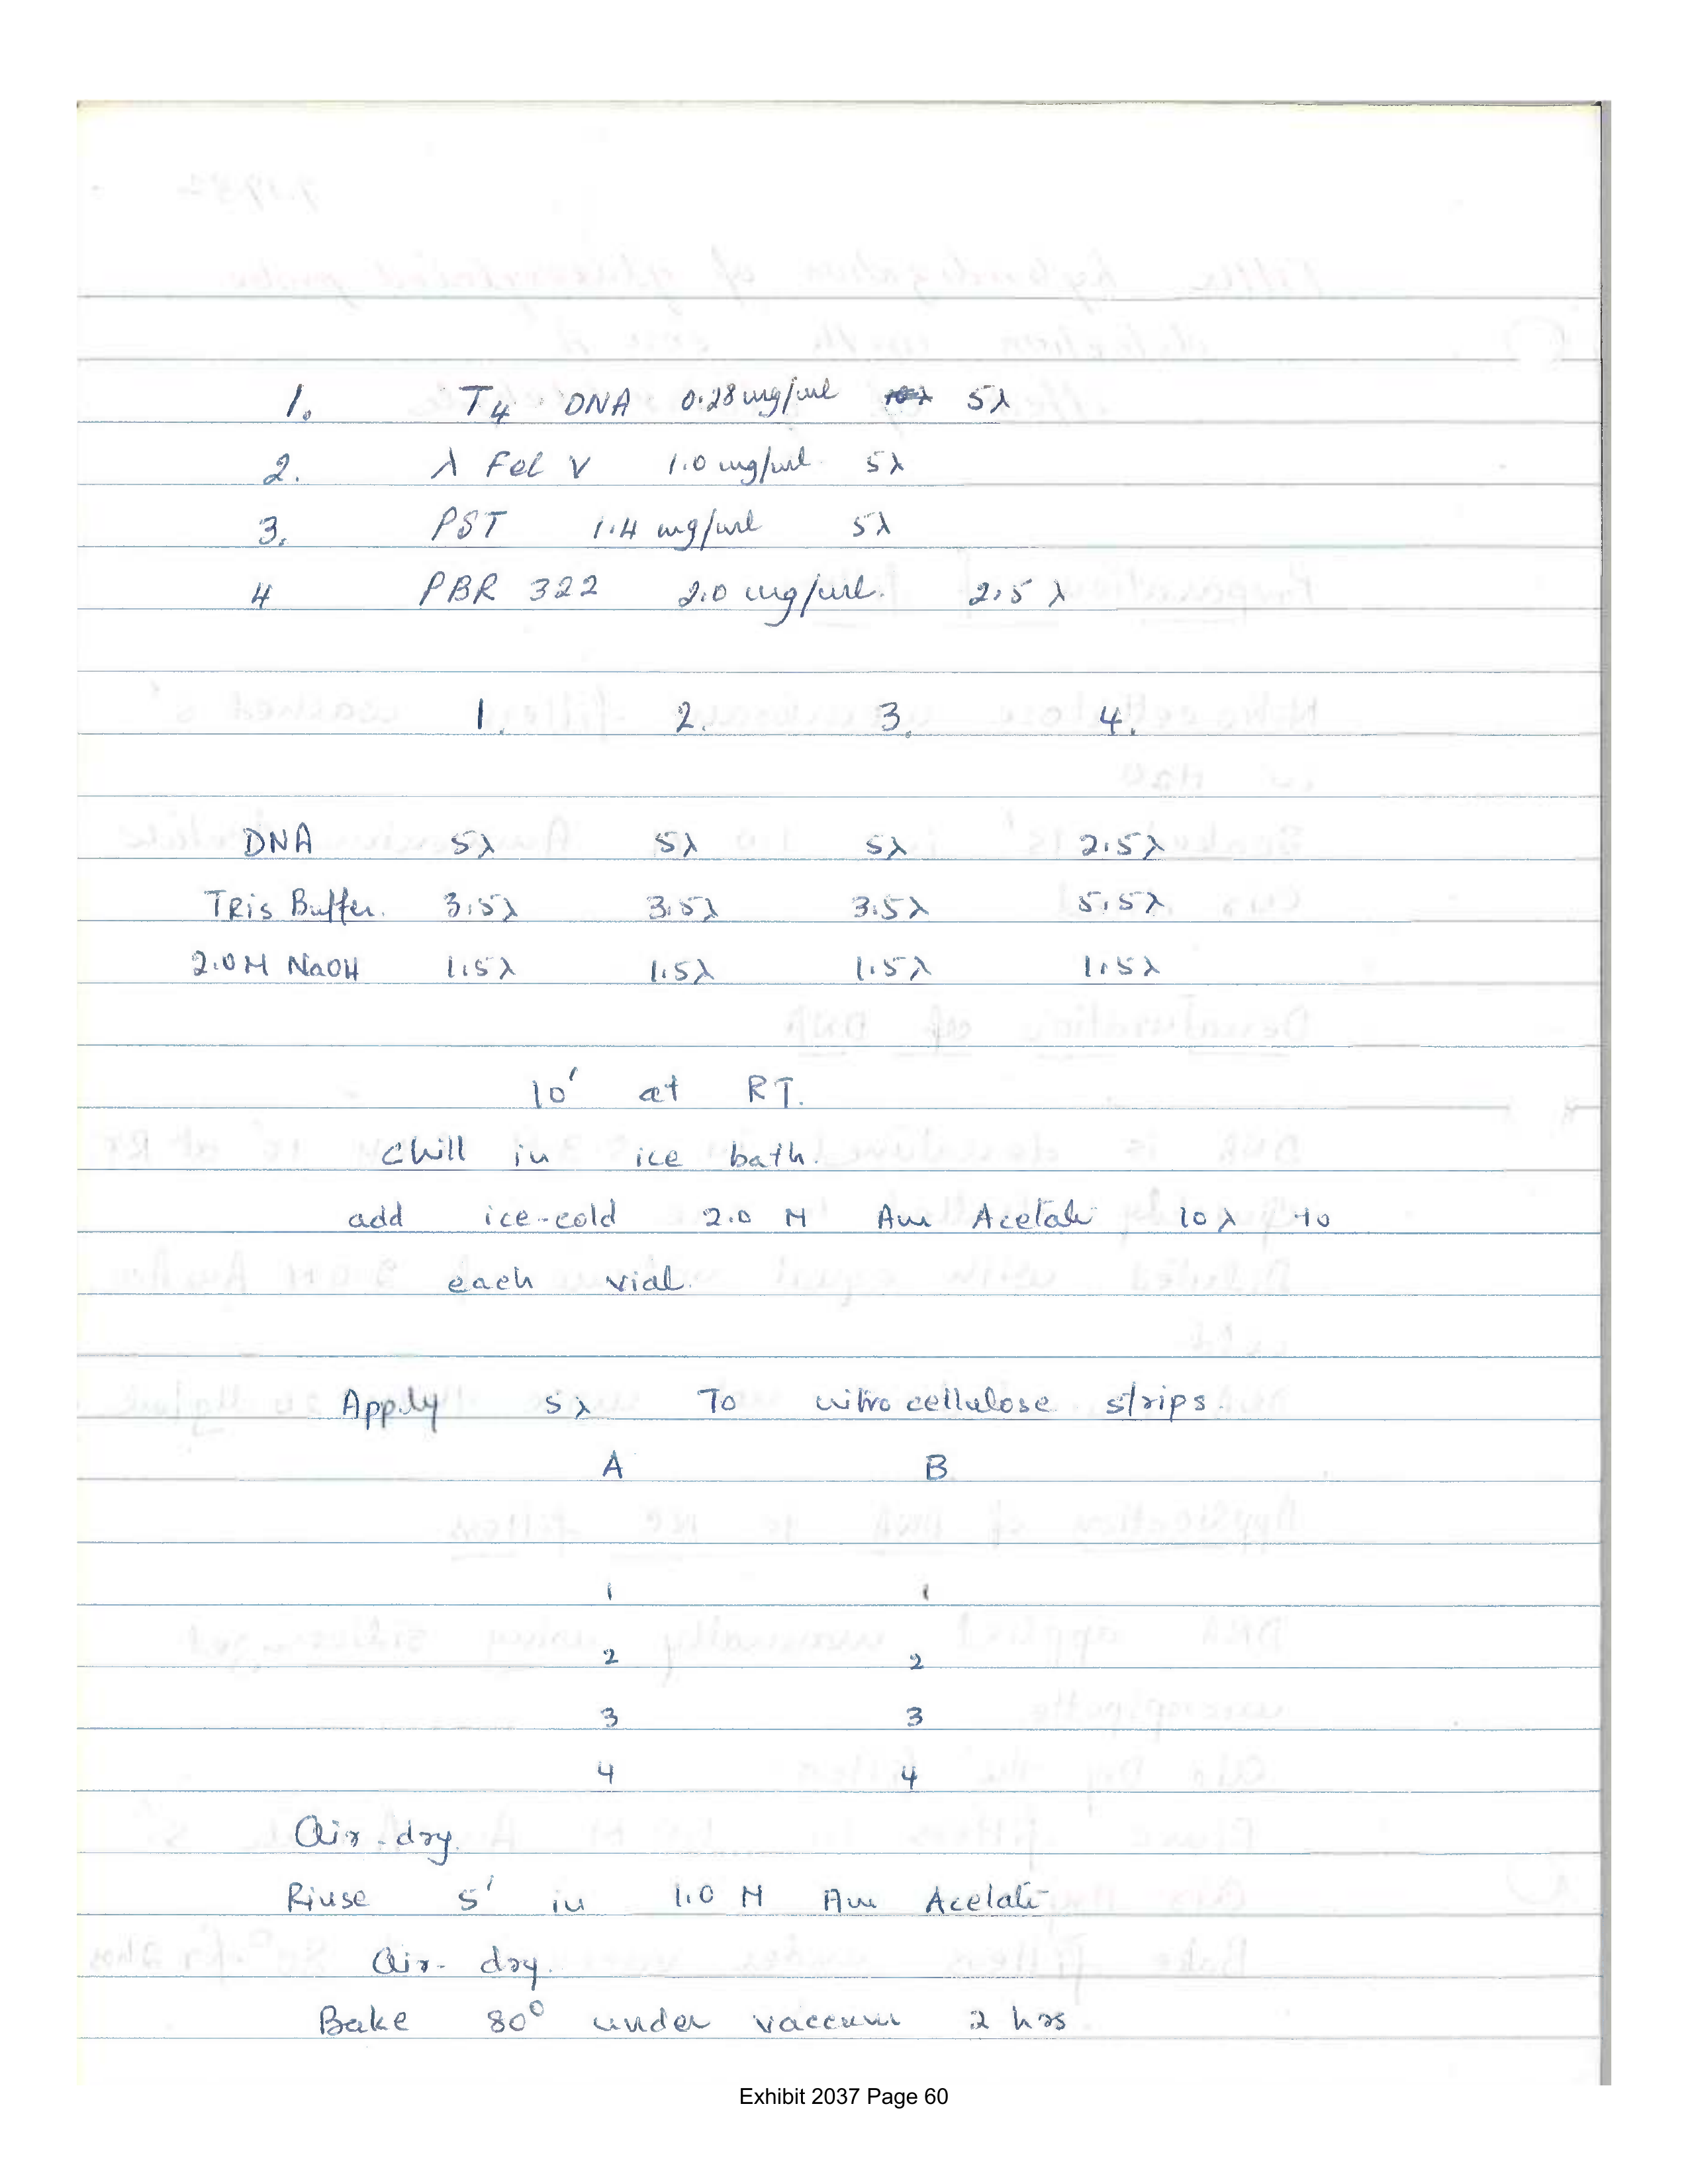 1. T4 DNA 0.28 mg/ml 5λ
2. λ Fel V 1.0 mg/ml. 5λ
3. PST 1.4 mg/ml 5λ
4 PBR 322 2.0 mg/ml. 2.5 λ
1. 2. 3. 4.
DNA 5λ 5λ 5λ 2.5λ
TRis Buffer. 3.5λ 3.5λ 3.5λ 5.5λ
2.0M NaOH 1.5λ 1.5λ 1.5λ 1.5λ
10' at RT.
Chill in ice bath.
add ice-cold 2.0 M Am Acetate 10λ to
each vial.
Apply 5λ To nitrocellulose strips.
A B
1 1
2 2
3 3
4 4
Air-dry.
Rinse 5' in 1.0 M Am Acetate
Air-dry.
Bake 80° under vaccum 2 hrs
Exhibit 2037 Page 60